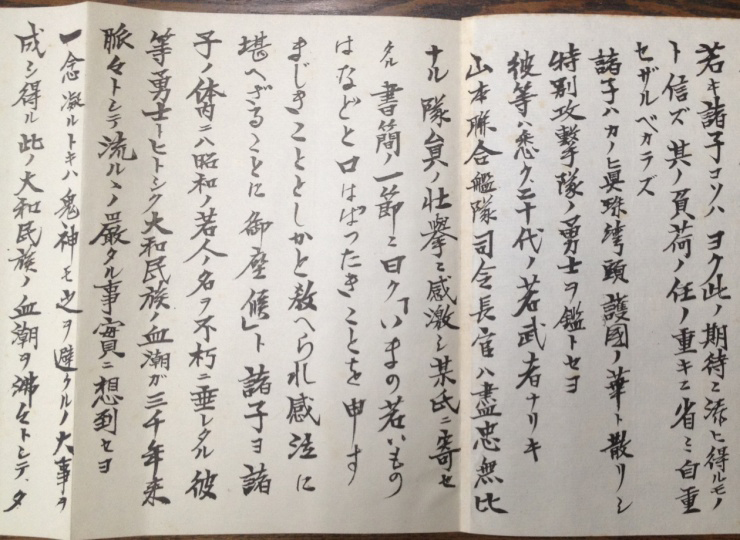 若キ諸子コソハヨク此ノ期待ニ添ヒ得ルモノ
ト信ズ其ノ負荷ノ任ノ重キニ省ミ自重
セザルベカラズ
諸子ハカノヒ眞珠湾頭護國ノ華ト散リシ
特別攻撃隊ノ勇士ヲ鑑トセヨ
彼等ハ悉ク二十代ノ若武者ナリキ
山本聯合艦隊司令長官ハ盡忠無比
ナル隊員ノ壮擧ニ感激シ某氏ニ寄セ
タル書簡ノ一節ニ曰ク「いまの若いもの
はなどと口はばつたきことを申す
まじきこととしかと教へられ感泣に
堪へざることに御座候」ト諸子ヨ諸
子ノ体内ニハ昭和ノ若人ノ名ヲ不朽ニ垂レタル彼
等勇士トヒトシク大和民族ノ血潮ガ三千年来
脈々トシテ流ルヽノ嚴タル事實ニ想到セヨ
一念凝ルトキハ鬼神モ之ヲ避クルノ大事ヲ
成シ得ル此ノ大和民族ノ血潮ヲ沸々トシテ、タ